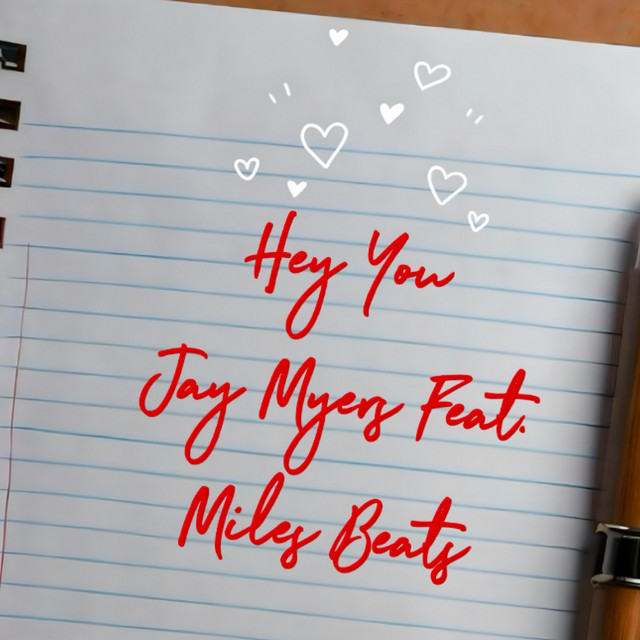 Hey You
Jay Myers Feat.
Miles Beats